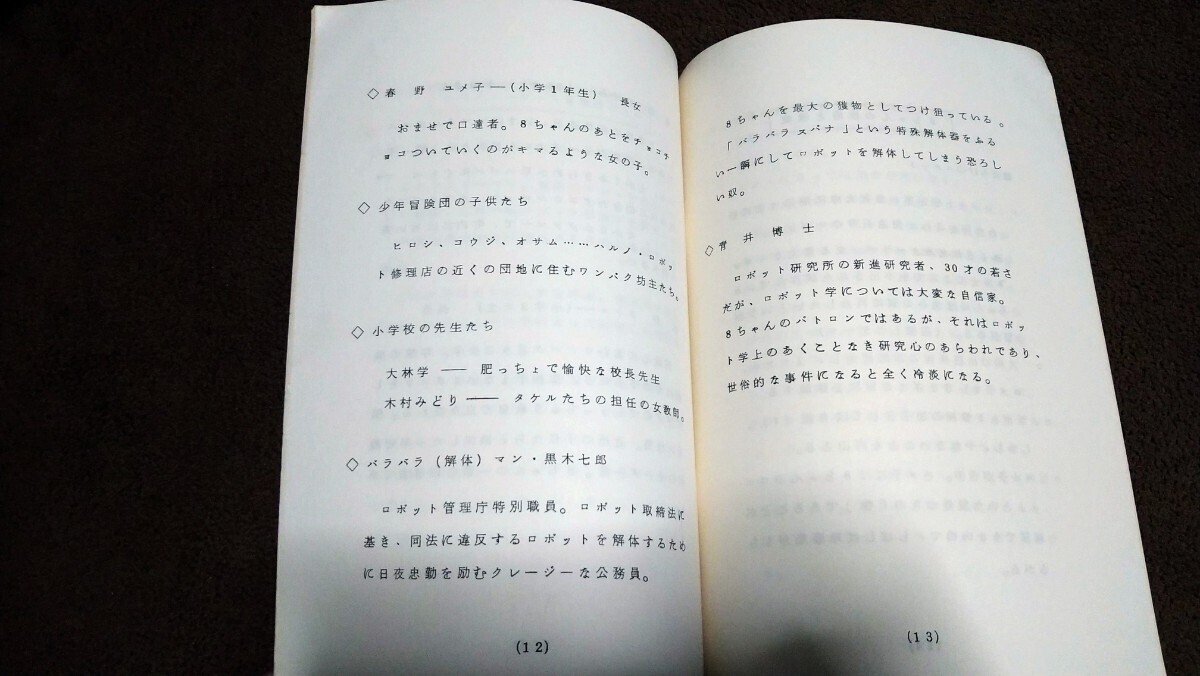 ◇ 春野 ユメ子―(小学1年生) 長女
おませで口達者。8ちゃんのあとをチョコチ
ョコついていくのがキマるような女の子。
◇ 少年冒険団の子供たち
ヒロシ、コウジ、オサム……ハルノ・ロボッ
ト修理店の近くの団地に住むワンパク坊主たち。
◇ 小学校の先生たち
大林学 ―― 肥っちょで愉快な校長先生
木村みどり ―― タケルたちの担任の女教師。
◇ バラバラ(解体)マン・黒木七郎
ロボット管理庁特別職員。ロボット取締法に
基き、同法に違反するロボットを解体するため
に日夜忠動を励むクレージーな公務員。
(12)
8ちゃんを最大の獲物としてつけ狙っている。
「バラバラスパナ」という特殊解体器をふる
い一瞬にしてロボットを解体してしまう恐ろし
い奴。
◇ 青井博士
ロボット研究所の新進研究者、30才の若さ
だが、ロボット学については大変な自信家。
8ちゃんのパトロンではあるが、それはロボッ
ト学上のあくことなき研究心のあらわれであり、
世俗的な事件になると全く冷淡になる。
(13)